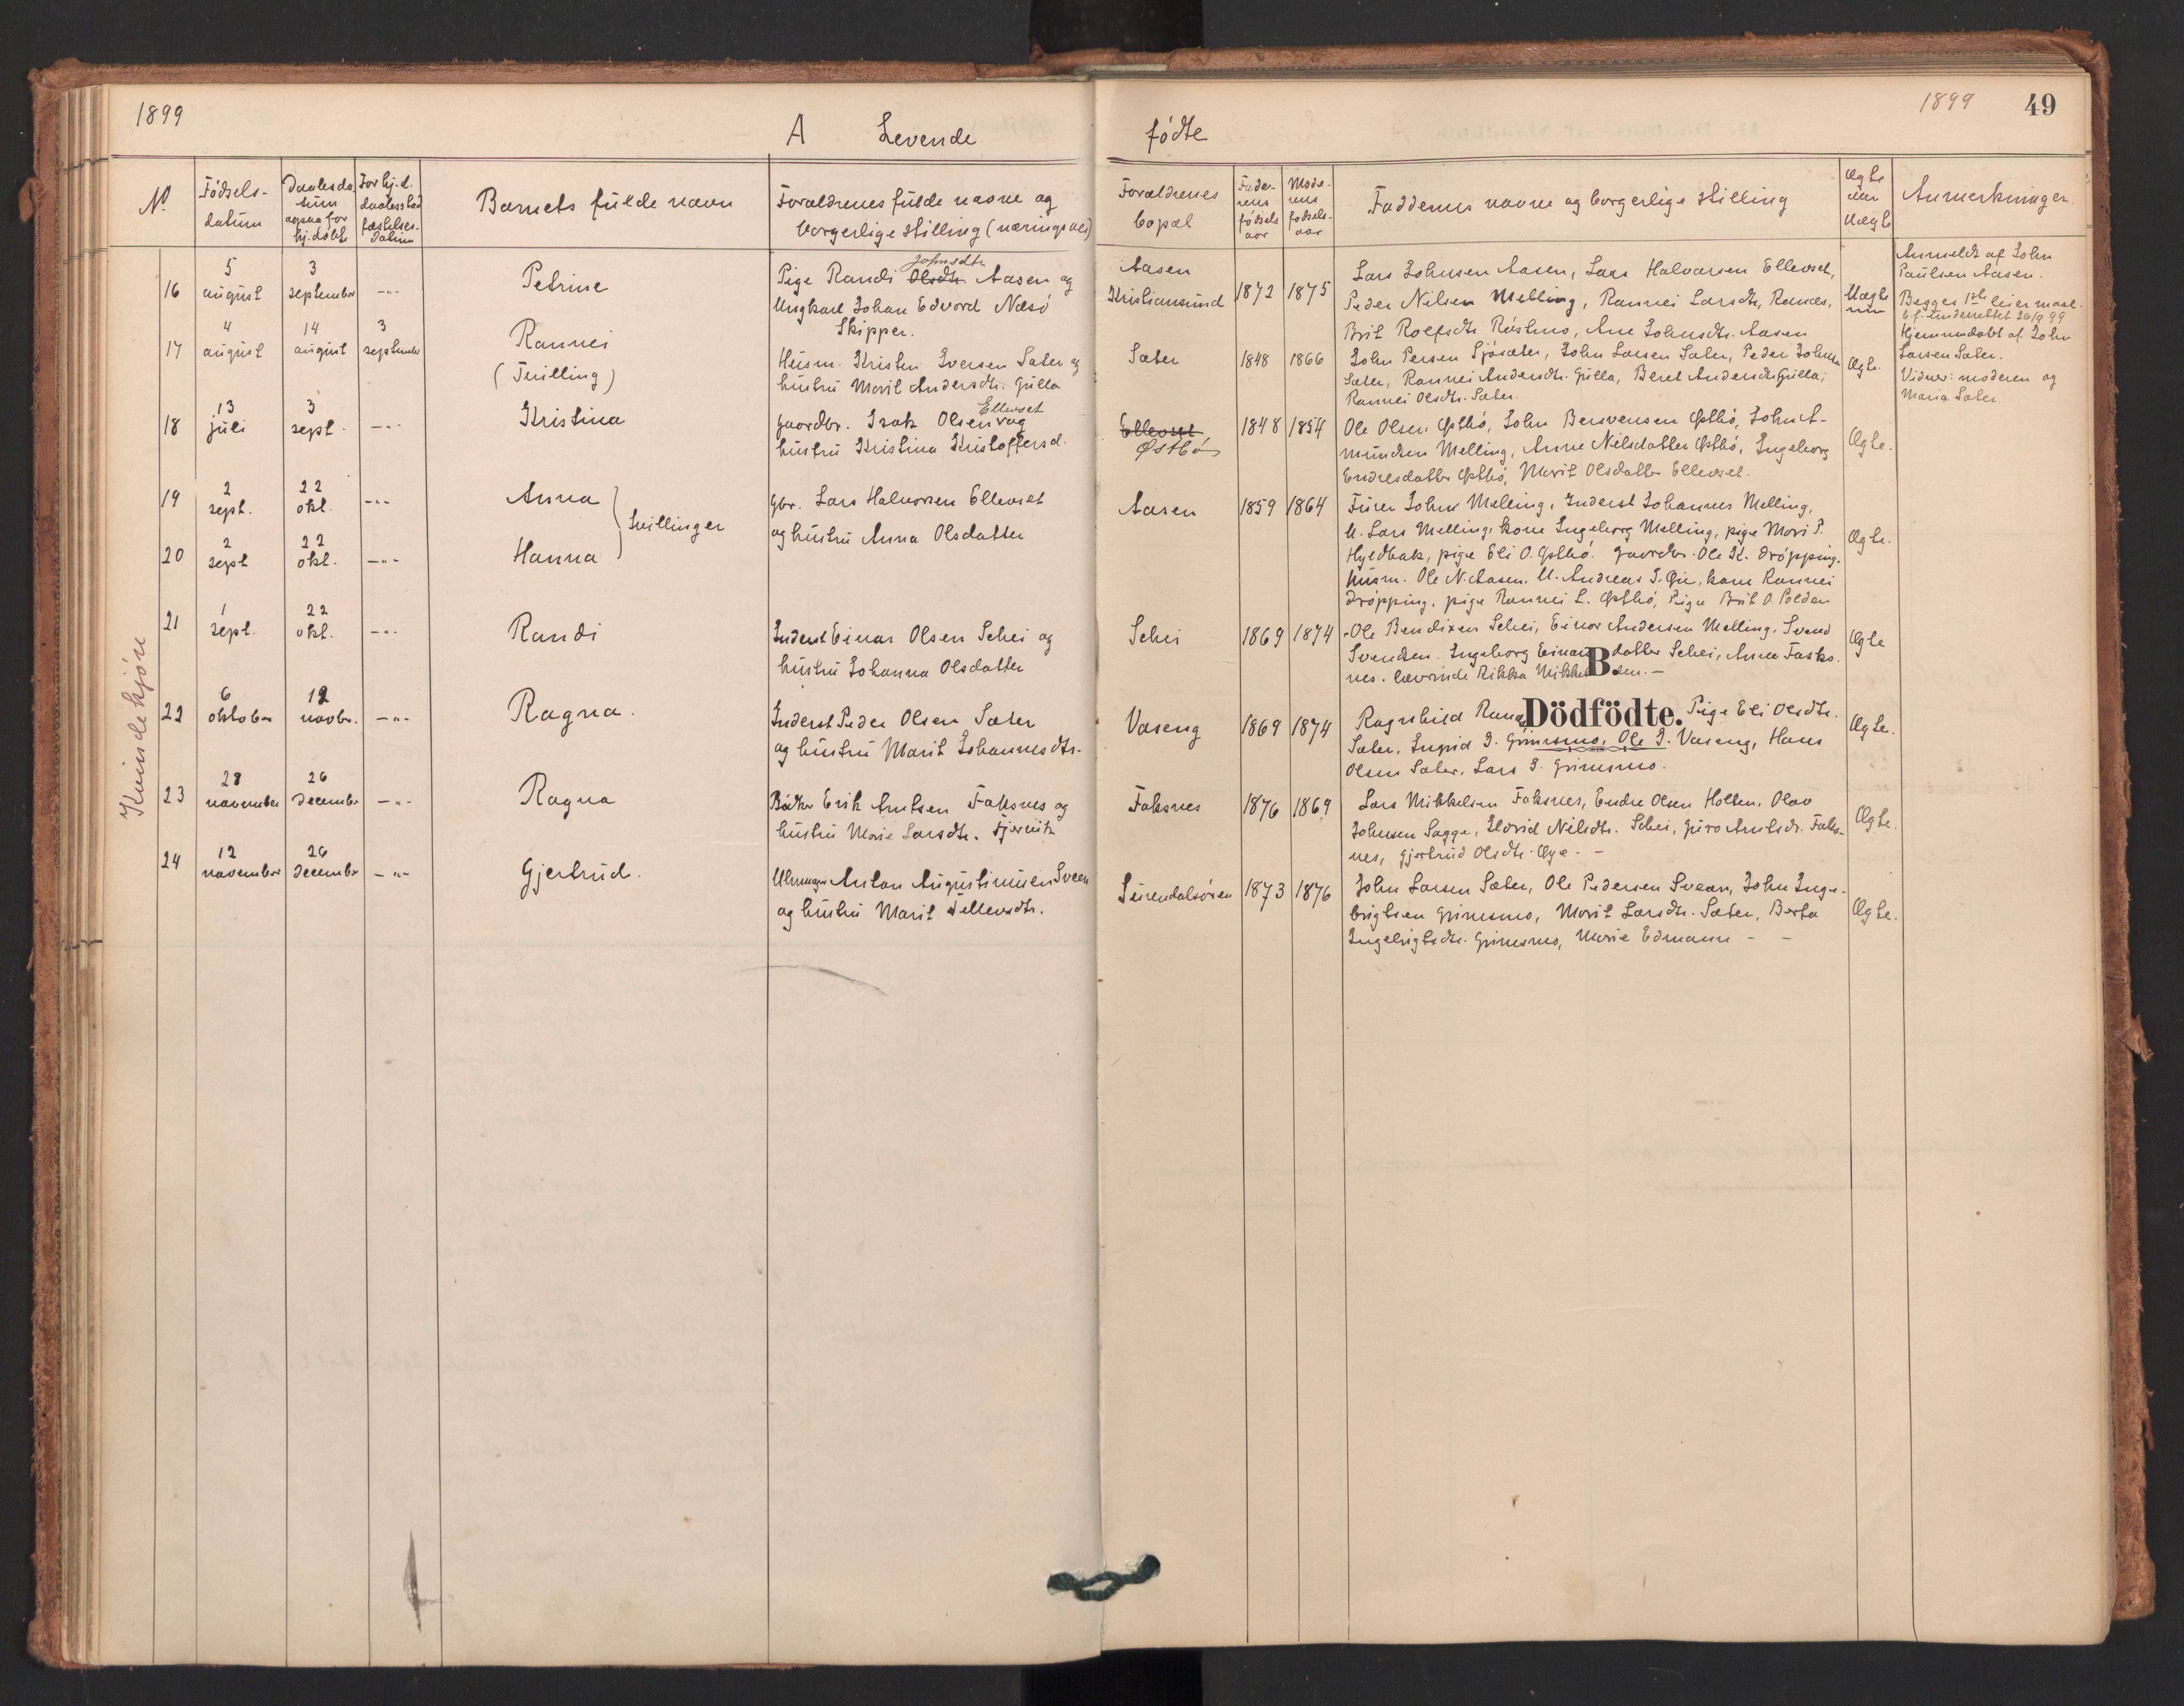 1899
A Levende
fødte
1899 49
No.
Fødsels-
datum
Daabsda-
tum
ogsaa for
hj.døbte
For hj.d.
daabsstad
fæstelses-
datum
Barnets fulde navn
Forældrenes fulde navne og
borgerlige stilling (næringsvei)
Forældrenes
bopæl
Fade-
rens
fødsels
aar
Mode-
rens
fødsels-
aar
Faddernes navne og borgerlige stilling
Ægte
eller
Uægte
Anmerkninger.
Kvindekjøn
16
5
august
3
september
-"-
Petrine
Johnsdtr
Pige Randi Olsdtr. Aasen og
Ungkarl Johan Edvard Næsø
Skipper.
Aasen
Kristiansund
1872 1875
Lars Johnsen Aasen, Lars Halvorsen Ellevset,
Peder Nilsen Melling, Rannei Larsdtr, Ranæs,
Brit Roefsdtr Røstmo, Ane Johnsdtr. Aasen
Uægte
Anmeldt af John
Paulsen Aasen.
Begges 1ste leiermaal.
17
4
august
14
august
3
september
Rannei
(Tvilling)
Husm. Kristen Iversen Sæter og
hustru Marit Andersdtr. Gulla
Sæter
1848 1866
John Persen Sjøsæter, John Larsen Sæter, Peder Johnsen
Sæter, Rannei Andersdtr. Gulla, Beret Andersdtr Gulla,
Rannei Olsdtr. Sæter.
Ægte.
Hjemmedøbt af John
Larsen Sæter.
Vidner: moderen og
Maria Sæter.
18
13
juli
3
sept.
-"-
Kristina
Ellevset
gaardbr. Isak Olsen og
hustru Kristina Kristoffersd.
Ellevset
Østbø
1848 1854
Ole Olsen Østbø, John Bersvensen Østbø, John A-
mundsen Melling, Anne Nilsdatter Østbø, Ingeborg
Endresdatter Østbø, Marit Olsdatter Ellevset.
Ægte.
19
2
sept.
22
okt.
-"-
Anna
20
2
sept
22
okt.
-"-
Hanna
Tvillinger
gbr. Lars Halvorsen Ellevset
og hustru Anna Olsdatter
Aasen
1859 1864
Furer John Melling, Inderst Johannes Melling,
U. Lars Melling, kone Ingeborg Melling, pige Mari P.
Hyldbak, pige Eli O. Østbø. gaardbr. Ole K. Drøpping.
husm. Ole N. Aasen, U. Andreas I. Øie, kone Rannei
Drøpping, pige Rannei L. Østbø, Pige Brit O. Polden
Ægte.
21
1
sept.
22
okt.
-"-
Randi
Inderst Einar Olsen Schei og
hustru Johanna Olsdatter
Schei
1869 1874
Ole Bendixen Schei, Einar Andersen Melling, Svend
Svendsen. Ingeborg Einarsdatter Schei, Anne Faks-
nes. lærerinde Rikka Mikkelsen. -
B.
Ægte
22
6
oktober
12
novbr.
-"-
Ragna.
Inderst Peder Olsen Sæter
og hustru Marit Johannesdtr.
Vaseng
1869 1874
Dödfödte.
Ragnhild Pige Eli Olsdtr.
Sæter, Ingrid I. Grimsmo, Ole I. Vaseng, Hans
Olsen Sæter. Lars I. Grimsmo.
Ægte.
23
28
november
26
december
-"-
Ragna
Bødker Erik Arntsen Faksnes og
hustru Marie Larsdtr.
Faksnes
1876 1869
Lars Mikkelsen Faksnes, Endre Olsen Holten, Olav
Johnsen Sagge, Havid Nilsdtr. Schei, Guro Arntsdr. Faks-
nes, Gjertrud Olsdtr. Øye. -
Ægte.
24
12
november
26
december
-"-
Gjertrud.
Uhrmager Anton Augustinusen Sveen
og hustru Marit Tellevsdtr.
Surendalsøren
1873 1876
John Larsen Sæter, Ole Pedersen Svean, John Inge-
brigtsen Grimsmo, Marit Larsdtr. Sæter, Berta
Ingebrigtsdtr. Grimsmo, Marie Edmann - -
Ægte.